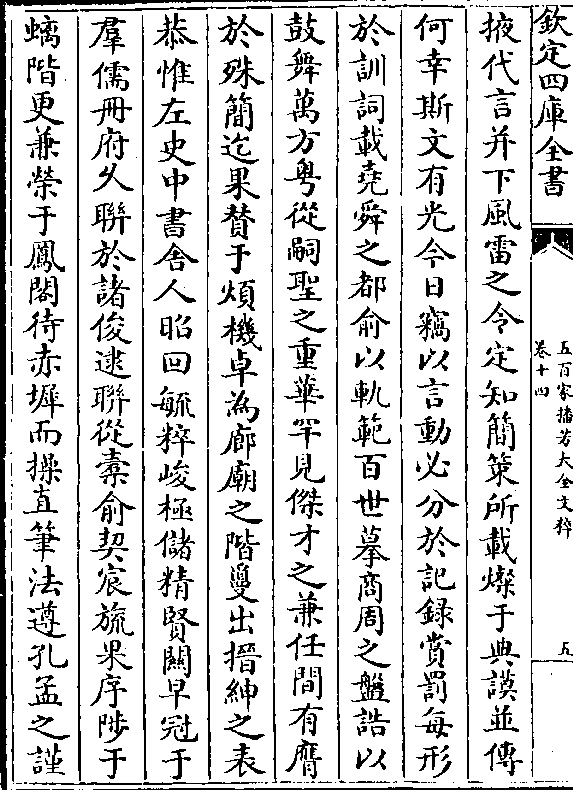 欽定四庫全書
五百家播芳大全文粹
卷十四
五
掖代言并下風雷之令定知簡策所載燦于典謨並傳
何幸斯文有光今日竊以言動必分於記録賞罰每形
於訓詞載堯舜之都俞以軌範百世摹商周之盤誥以
鼓舞萬方粤從嗣聖之重華罕見傑才之兼任間有膺
於殊簡迄果賛于煩機卓為廊廟之階夐出搢紳之表
恭惟左史中書舎人昭回毓粹峻極儲精賢闗早冠于
羣儒冊府乆聯於諸俊逮聯從橐俞契宸旒果序陟于
螭階更兼榮于鳳閣待赤墀而操直筆法遵孔孟之謹